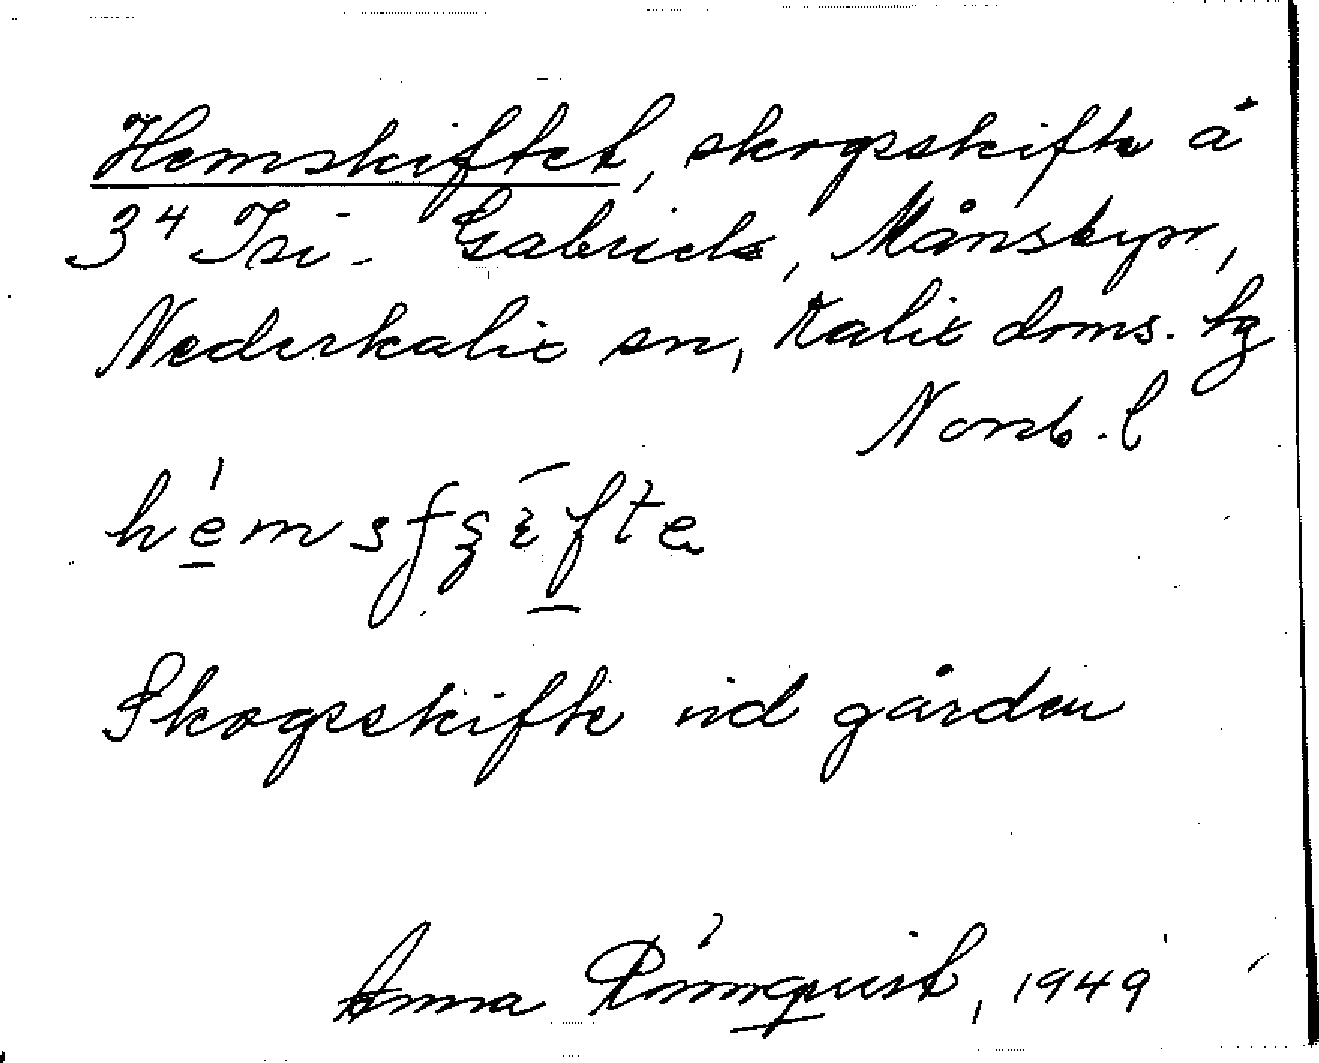 Hemskiftet, skogsskifte å
3⁴ Isi - Gabriels, Månsbyn,
Nederkalix sn, Kalix doms. tg
Norrb. l
Skogsskifte vid gården
Anna Rönnquist, 1949